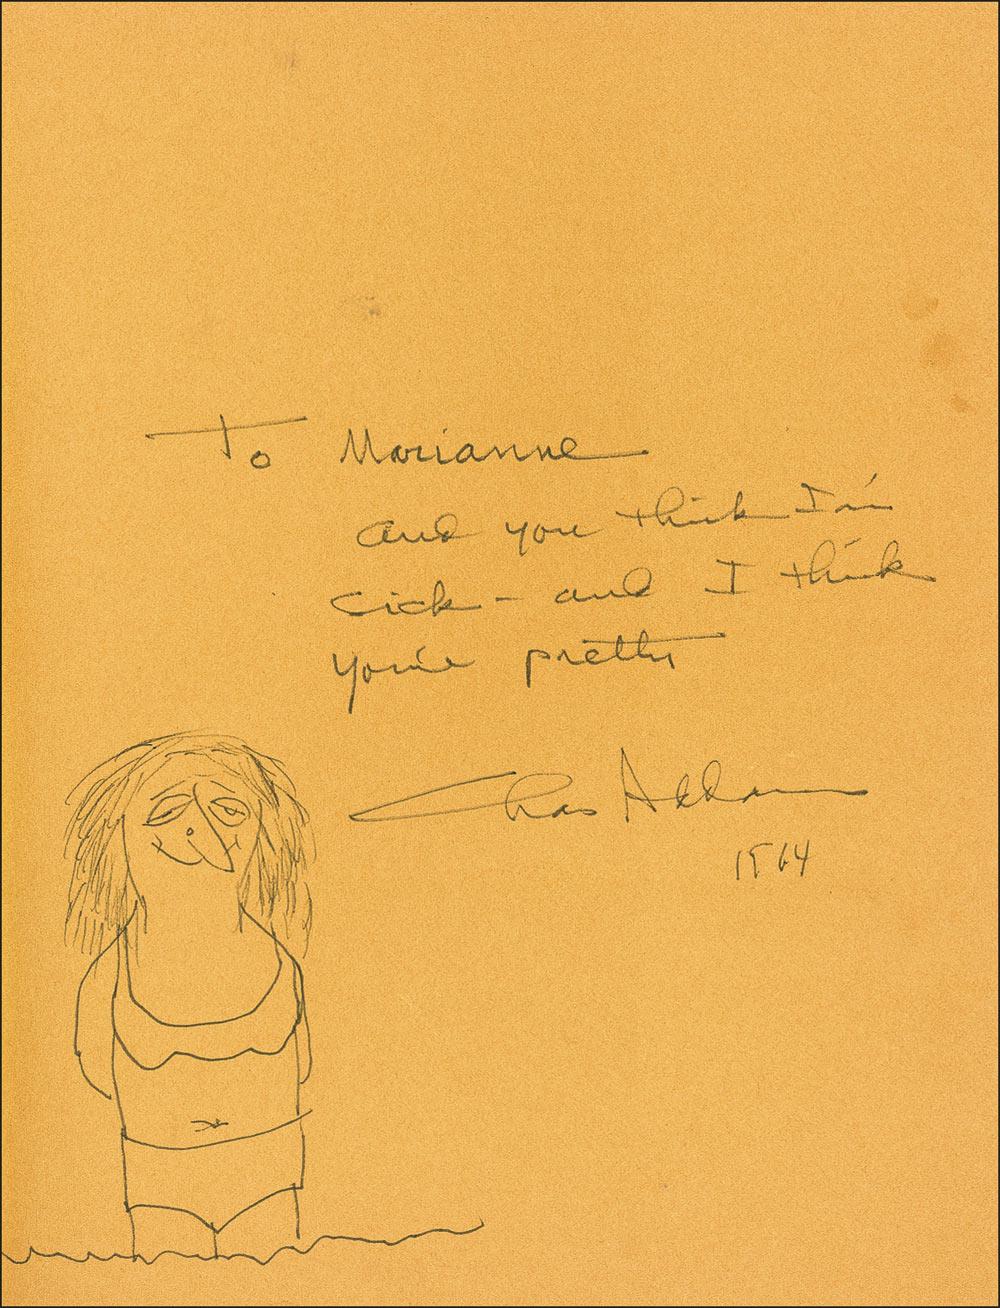 To Marianne
and you think I'm
sick - and I think
you're pretty
Chas Addams
1964